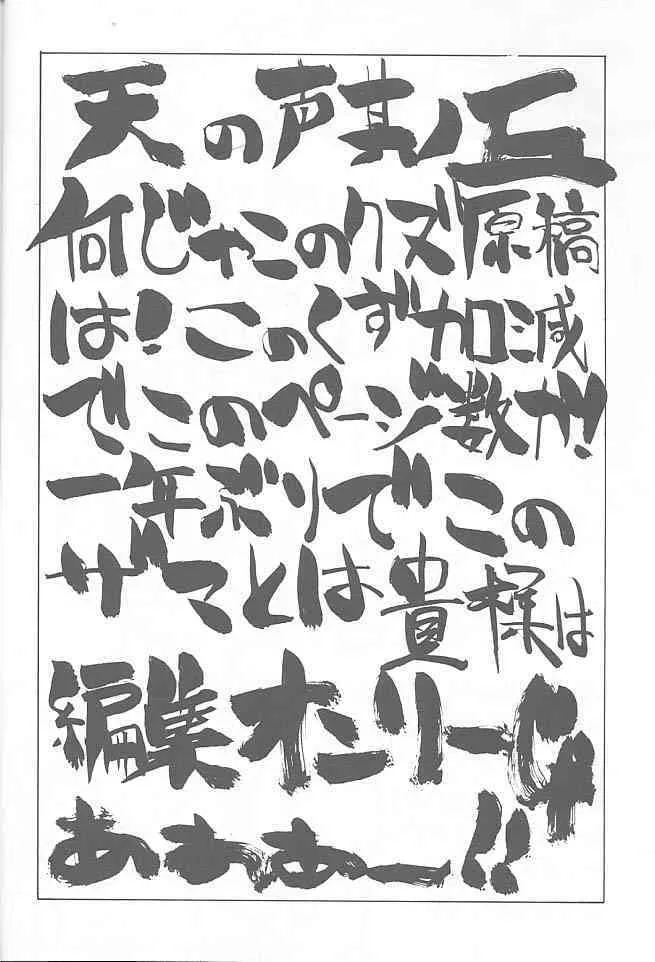 天の声其ノ五
何じゃこのクズ原稿
は！このくず加減
でこのページ数か！
一年ぶりでこの
ザマとは貴様は
編集オンリーじゃ
あぁぁー！！